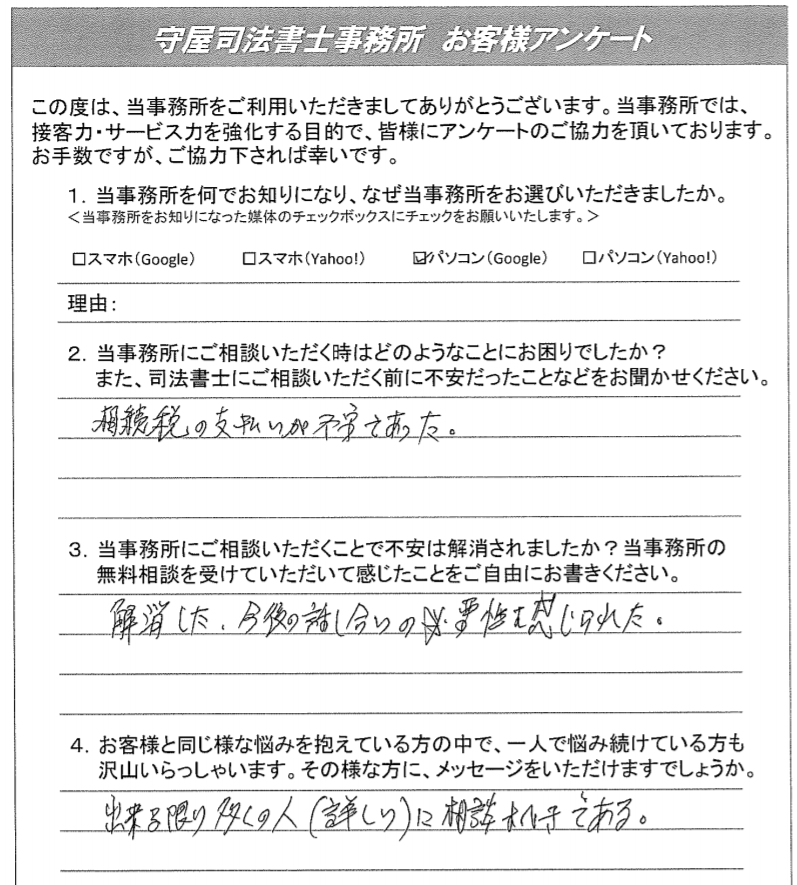 守屋司法書士事務所 お客様アンケート
この度は、当事務所をご利用いただきましてありがとうございます。当事務所では、
接客力・サービス力を強化する目的で、皆様にアンケートのご協力を頂いております。
お手数ですが、ご協力下されば幸いです。
1. 当事務所を何でお知りになり、なぜ当事務所をお選びいただきましたか。
＜当事務所をお知りになった媒体のチェックボックスにチェックをお願いいたします。＞
□スマホ(Google) □スマホ(Yahoo!) ☑パソコン(Google) □パソコン(Yahoo!)
理由:
2. 当事務所にご相談いただく時はどのようなことにお困りでしたか？
また、司法書士にご相談いただく前に不安だったことなどをお聞かせください。
相続税の支払いが不安であった。
3. 当事務所にご相談いただくことで不安は解消されましたか？当事務所の
無料相談を受けていただいて感じたことをご自由にお書きください。
解消した、今後の話し合いの必要性も感じられた。
4. お客様と同じ様な悩みを抱えている方の中で、一人で悩み続けている方も
沢山いらっしゃいます。その様な方に、メッセージをいただけますでしょうか。
出来る限り多くの人(詳しい)に相談すべきである。